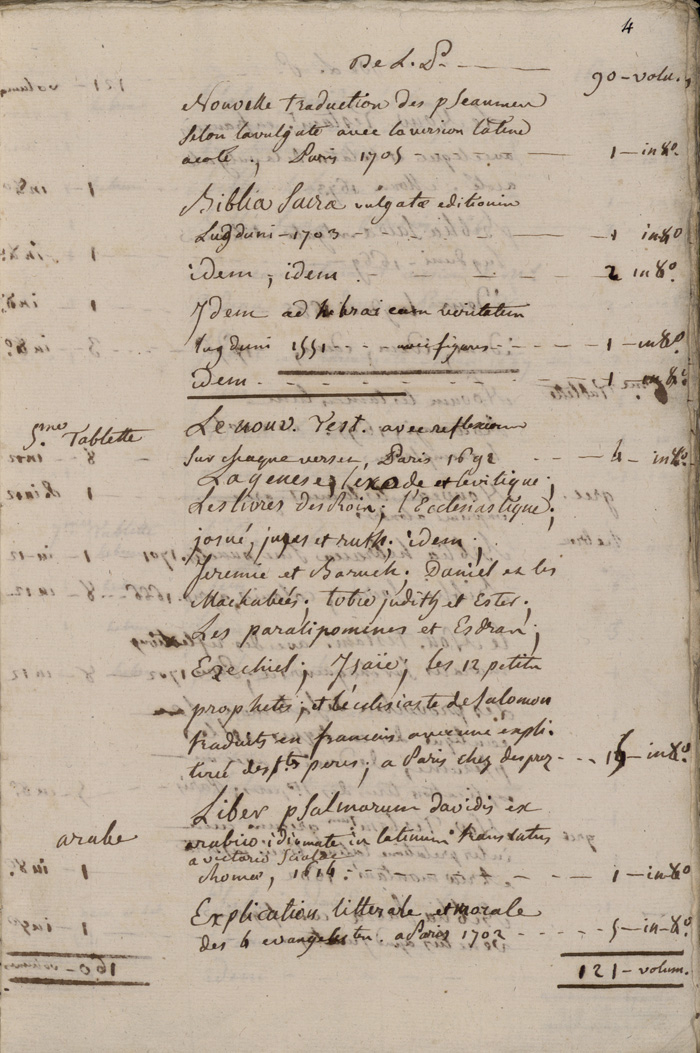 4
De L. P. 90 - volu.
Nouvelle traduction des pseaumes
selon la vulgate avec la version latine
a coté, Paris 1705 1 - in 8°.
Biblia Sacra vulgatæ editionis
Lugduni - 1703 - 1 in 8°
idem, idem - 2 in 8°.
Idem ad hebraicam veritatem
Lugduni 1551 - avec figures - 1 - in 8°.
idem - 1 in 8°
5.me Tablette Le nouv. Test. avec reflexions
sur chaque verset, Paris 1692 - 4 - in 8°.
La genese, l'exode et levitique;
Les livres des Rois; l'Ecclesiastique;
josué, juges et ruth; idem;
Jeremie et Baruch; Daniel et les
Machabées; tobie judith et Ester;
Les paralipomenes et Esdras;
Ezechiel; Isaïe; les 12 petits
prophetes; et l'éclesiaste de Salomon
traduits en francois avec une expli.
tirée des sts peres; a Paris chez desprez - in 8°
Liber psalmorum davidis ex
arabe arabico idiomate in latinum translatus
a victorio
Romæ, 1614. - 1 - in 8°
Explication litterale et morale
des 4 evangelistes a Paris 1702 - 5 - in-8°
121 - volum.